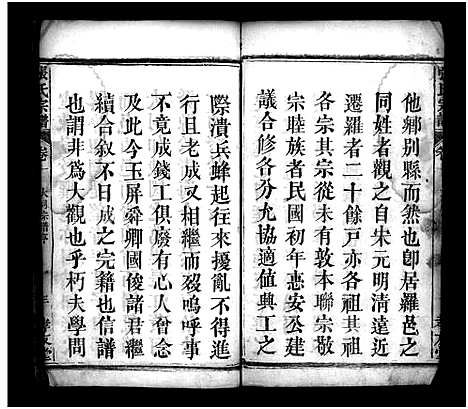 他鄉別縣而然也卽居羅邑之
同姓者觀之自宋元明清遠近
遷羅者二十餘戶亦各祖其祖
各宗其宗從未有敦本聯宗敬
宗睦族者民國初年惠安公建
議合修各分允協適値典工之
際潰兵蜂起往來擾亂不得進
行且老成又相繼而歿嗚呼事
不竟成錢工俱廢有心人會念
及此今玉屏舜卿國俊諸君繼
續合敘不日成之完籍也信譜
也謂非爲大觀也乎朽夫學問
張氏宗譜
卷